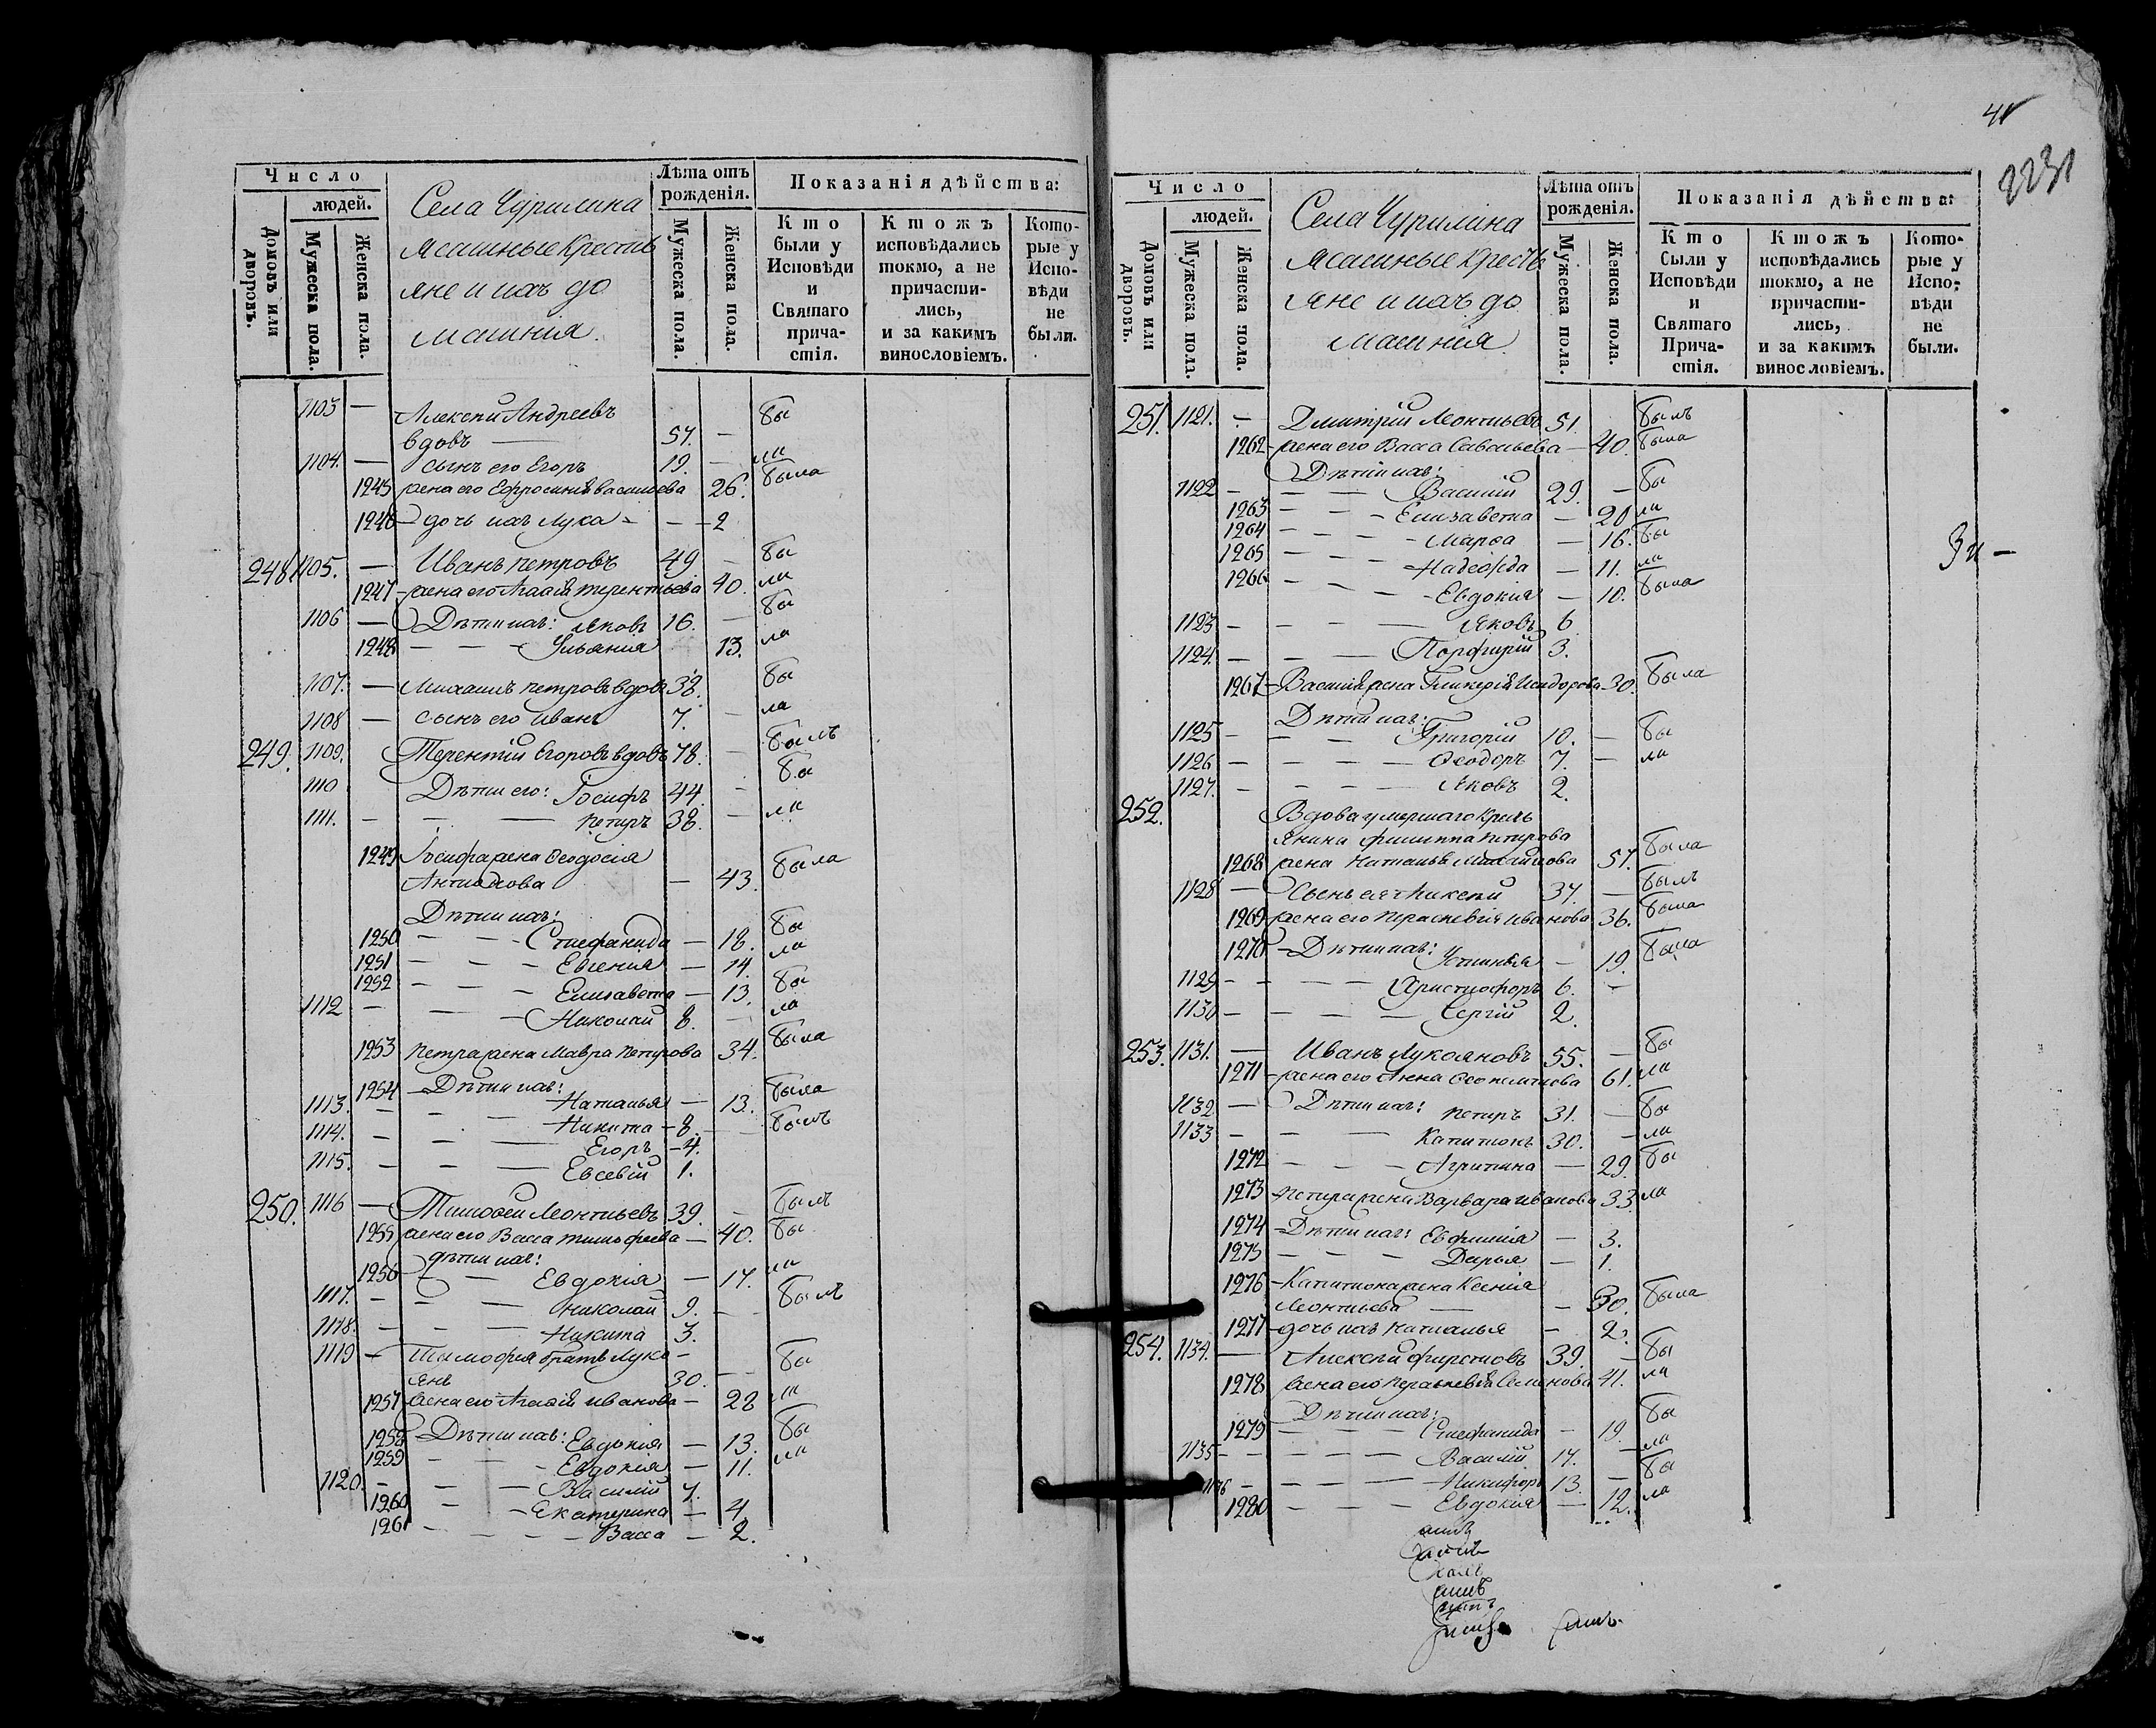 41
2231
Число
людей.
Домовъ или дворовъ.
Мужеска пола.
Женска пола.
Села Чурилина
Ясашные Кресть
яне и ихъ до
машнія.
Лѣта отъ рожденія.
Мужеска пола.
Женска пола.
Показанія дѣйства:
Кто были у Исповѣди и Святаго прича-стія.
Ктожъ исповѣдались токмо, а не причасти-лись, и за какимъ винословіемъ.
Кото-рые у Испо-вѣди не были.
1103 — Алексѣй Андреевъ бы
вдовъ — 57. —
1104. — сынъ его Егоръ 19. — ли
1245 жена его Ефросинья Васильева 26. была
1246 — дочь ихъ Лука - — — 2
248. 1105. — Иванъ Петровъ 49 — бы
1247 жена его Агафія Терентьева 40. ли
1106 — Дѣти ихъ: Яковъ 16. — бы
1248 — — Ульянія 13. ли
1107. — Михаилъ Петровъ вдовъ 38. бы
1108 — сынъ его Иванъ 7. — ли
249. 1109. Терентій Егоровъ вдовъ 78. — былъ
1110 Дѣти его: Іосифъ 44. — бы
1111. — — — Петръ 38. — ли
1249 Іосифа жена Ѳеодосія
Антипова — 43. была
Дѣти ихъ:
1250 — — Стефанида — 18. бы
1251 — — — Евгенія — 14. ли
1252 — — — Елизавета — 13. бы
1112 — — — Николай 8. — ли
1253 Петра жена Мавра Петрова 34. была
1254 — Дѣти ихъ:
Наталья — 13. была
1113. — — — Никита — 8. — — былъ
1114. — — — Егоръ — 4.
1115. — — — Евсевій 1.
250. 1116 — Тимоѳей Леонтьевъ 39. — былъ
1255 жена его Васса Тимофеева — 40. бы
дѣти ихъ:
1256 — — Евдокія — 17. ли
1117. — — — Николай 9. — — былъ
1118. — — — Никита 3.
1119 — Тимофея братъ Лукь-
янъ 30. — — бы
1257 жена его Агафія Иванова — 28 ли
1258 — Дѣти ихъ: Евдокія — 13. бы
1259 — — Евдокія — 11. ли
1120. — — — Василій 7.
1260 — — Екатерина — 4
1261 — — — — Васса — 2.
Число
людей.
Домовъ или дворовъ.
Мужеска пола.
Женска пола.
Села Чурилина
Ясашные Кресть
яне и ихъ до
машнія.
Лѣта отъ рожденія.
Мужеска пола.
Женска пола.
Показанія дѣйства:
Кто были у Исповѣди и Святаго Прича-стія.
Ктожъ исповѣдались токмо, а не причасти-лись, и за какимъ винословіемъ.
Кото-рые у Испо-вѣди не были.
251. 1121. — Дмитрій Леонтьевъ 51. былъ
1262 жена его Васса Савельева — 40. была
Дѣти ихъ:
1122 — — — Василій 29. — бы
1263 — — Елизавета — 20 ли
1264 — — — Марѳа — 16. бы
1265 — — — Надежда — 11. ли
1266 — — — Евдокія — 10. была
1123 — — — Яковъ 6
1124. — — — Порфирій 3.
1267 — Василія жена Гликерія Исидорова 30. была
Дѣти ихъ:
1125 — — — Григорій 10. — бы
1126 — — — — Ѳеодоръ 7. — ли
1127. — — — — Яковъ 2.
252. Вдова умершаго Кресть
янина Филиппа Петрова
1268 жена Наталья Михайлова 57. была
1128 — Сынъ ея Алексѣй 37. — былъ
1269 жена его Параскевія Иванова 36. была
1270 — Дѣти ихъ: Устинья — 19. была
1129 — — — — Христофоръ 6. —
1130 — — — — Сергій 2.
253. 1131. — Иванъ Лукояновъ 55. — бы
1271 — жена его Анна Ѳеопемптова 61. ли
1132 — Дѣти ихъ: Петръ 31. — бы
1133 — — — Капитонъ 30. — ли
1272 — — — Агрипина — 29. бы
1273 — Петра жена Варвара Иванова 33. ли
1274 — Дѣти ихъ: Евфимія — 3.
1275 — — — Дарья — 1.
1276 — Капитона жена Ксенія
Леонтьева — — 30. была
1277 — дочь ихъ Наталья — 2.
254. 1134. — Алексѣй Фирстовъ 39. — бы
1278 жена его Параскевія Семенова 41. ли
Дѣти ихъ:
1279 — — — Стефанида — 19. бы
1135 — — — — Василій 17. — ли
1136 — — — — Никифоръ 13. — бы
1280 — — — Евдокія — 12. ли